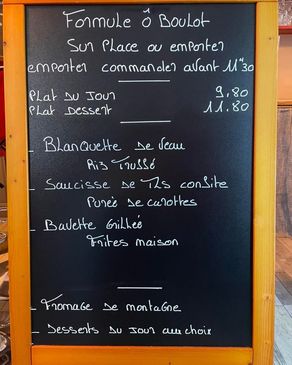 Formule Ô Boulot
Sur Place ou emporter
emporter commander avant 11h30
Plat du Jour 9,80
Plat Dessert 11.80
_ Blanquette de Veau
Riz Truffé
_ Saucisse de Tls confite
Purée de carottes
_ Bavette Grillée
Frites maison
_ Fromage de montagne
_ Desserts du Jour au choix